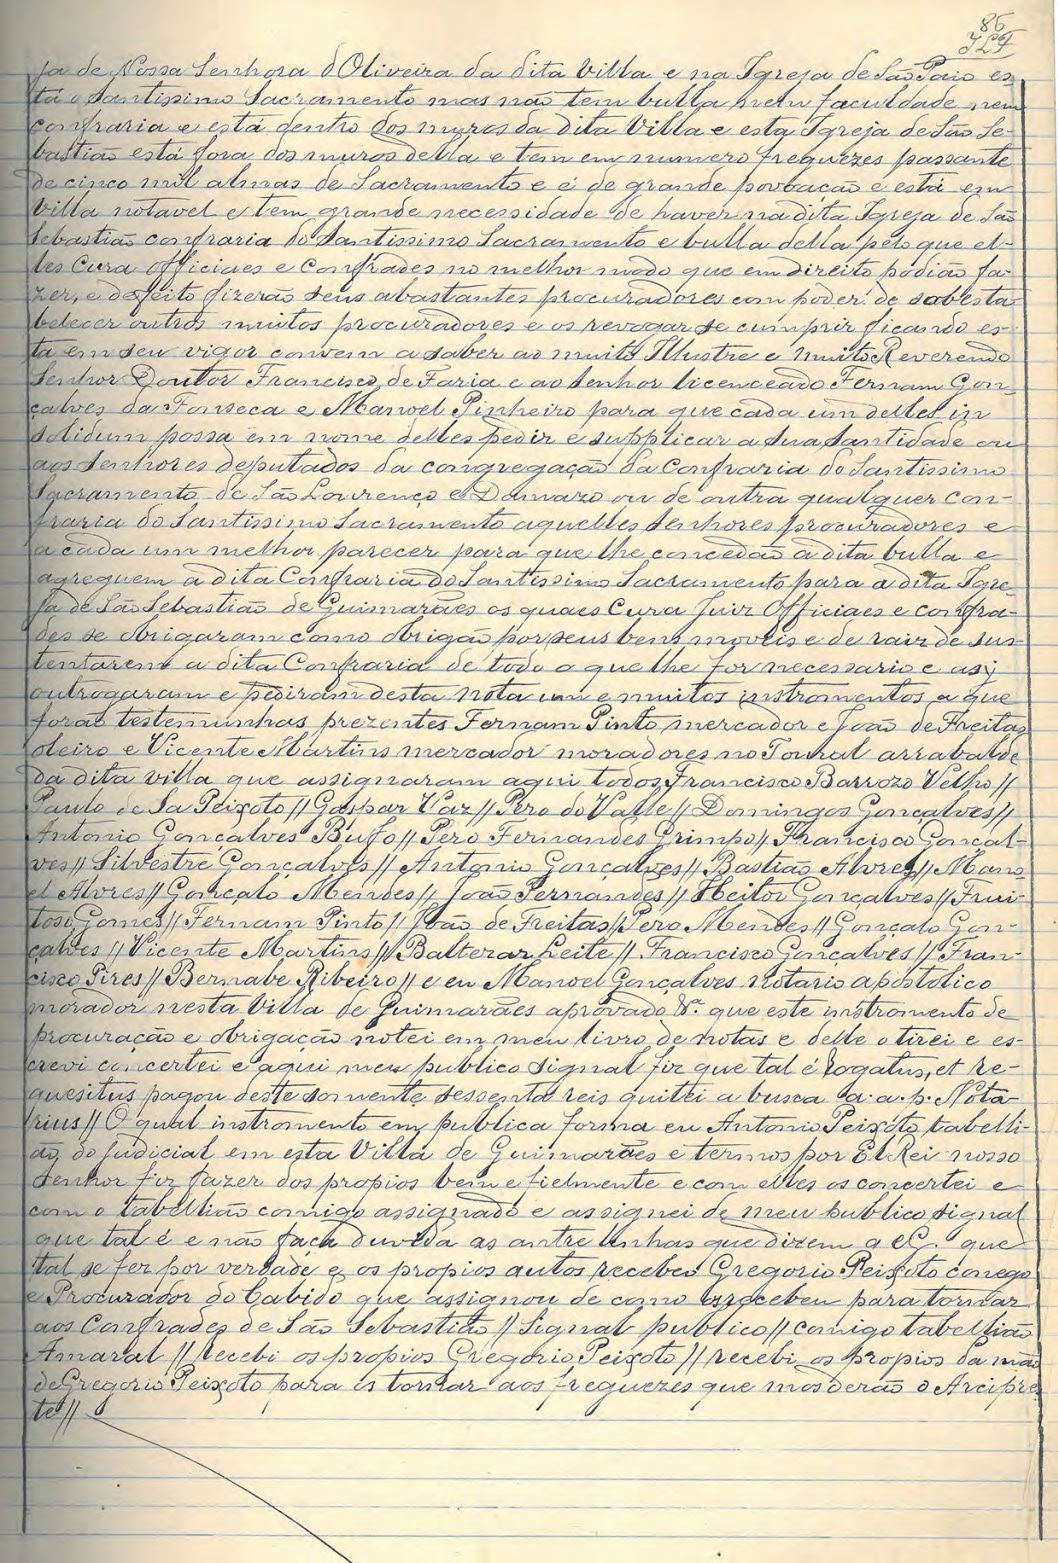 86
JLF
ja de Nossa Senhora d Oliveira da dita Villa e na Igreja de São Paio es-
tá o Santissimo Sacramento mas não tem bulla nem faculdade nem
confraria e está dentro dos muros da dita Villa e esta Igreja de São Se-
bastião está fora dos muros della e tem em numero freguezes passante
de cinco mil almas de Sacramento e é de grande povoação e está em
Villa notavel e tem grande necessidade de haver na dita Igreja de São
Sebastião confraria do Santissimo Sacramento e bulla della pelo que el-
les Cura officiaes e Confrades no melhor modo que em direito podião fa-
zer, e de feito fizerão seus abastantes procuradores com poder de sobesta
belecer outros muitos procuradores e os revogar se cumprir ficando es-
ta em seu vigor convem a saber ao muito Illustre e muito Reverendo
Senhor Doutor Francisco de Faria e ao Senhor licenceado Fernam Gon-
çalves da Fonseca e Manoel Pinheiro para que cada um delles in
solidum possa em nome delles pedir e supplicar a Sua Santidade ou
aos Senhores deputados da congregação da Confraria do Santissimo
Sacramento de São Lourenço e Damazo ou de outra qualquer con-
fraria do Santissimo Sacramento aquelles Senhores procuradores e
a cada um melhor parecer para que lhe concedão a dita bulla e
agreguem a dita Confraria do Santissimo Sacramento para a dita Igre-
ja de São Sebastião de Guimarães os quaes Cura Juiz Officiaes e confra-
des se obrigaram como obrigão por seus bens moveis e de raiz de sus-
tentarem a dita Confraria de todo o que lhe for necessario e asy
outrogaram e pediram desta nota um e muitos instromentos a que
forão testemunhas prezentes Fernam Pinto mercador e João de Freitas
oleiro e Vicente Martins mercador moradores no Toural arrabalde
da dita villa que assignaram aqui todos, Francisco Barrozo Velho //
Paulo de Sa Peixoto // Gaspar Vaz // Pero do Valle // Domingos Gonçalves //
Antonio Gonçalves Bufo // Pero Fernandes Grimpo // Francisco Gonçal-
ves // Silvestre Gonçalves // Antonio Gonçalves // Bastião Alvres // Mano
el Alvres // Gonçalo Mendes // João Fernandes // Heitor Gonçalves // Frui-
toso Gomes // Fernam Pinto // João de Freitas // Pero Mendes // Gonçalo Gon-
çalves // Vicente Martins // Baltezar Leite // Francisco Gonçalves // Fran-
cisco Pires // Bernabe Ribeiro // e eu Manoel Gonçalves notario apostolico
morador nesta Villa de Guimarães aprovado que este instromento de
procuração e obrigação notei em meu livro de notas e delle o tirei e es-
crevi concertei e aqui meu publico signal fiz que tal é Rogatus, et re-
quesitus pagou deste somente sessenta reis quitei a busca a. a. p. Nota-
rius // O qual instromento em publica forma eu Antonio Peixoto tabelli-
ão do judicial em esta Villa de Guimarães e termos por El Rei nosso
Senhor fiz fazer dos propios bem e fielmente e com elles os concertei e
com o tabellião comigo assignado e assignei de meu publico signal
que tal é e não faça duvida as antre linhas que dizem a que
tal se fez por verdade e os propios autos recebeo Gregorio Peixoto conego
e Procurador do Cabido que assignou de como os recebeu para tornar
aos Confrades de São Sebastião // Signal publico // comigo tabellião
Amaral // recebi os propios Gregorio Peixoto // recebi os propios da mão
de Gregorio Peixoto para os tornar aos freguezes que mos derão o Arcipres
te //